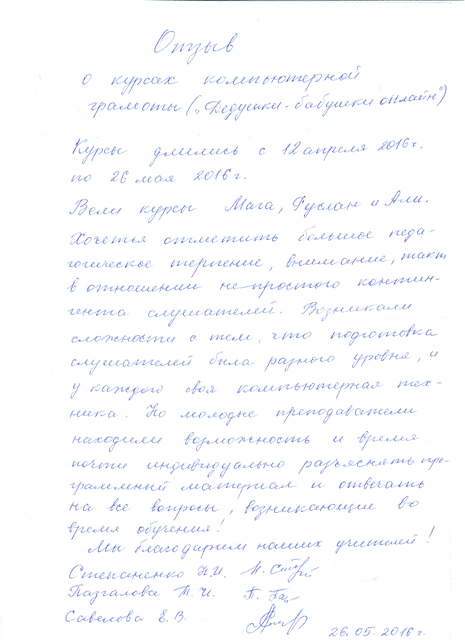 Отзыв
о курсах компьютерной
грамоты („Дедушки-бабушки онлайн")
Курсы длились с 12 апреля 2016г.
по 26 мая 2016г.
Вели курсы Мага, Руслан и Али.
Хочется отметить большое педа-
гогическое терпение, внимание, такт
в отношении непростого контин-
гента слушателей. Возникали
сложности с тем, что подготовка
слушателей была разного уровня, и
у каждого своя компьютерная тех-
ника. Но молодые преподаватели
находили возможность и время
почти индивидуально разъяснять про-
граммный материал и отвечать
на все вопросы, возникающие во
время обучения!
Мы благодарим наших учителей!
Степаненко Н.И.
Пазгалова Т.И.
Савелова Е.В.
26.05.2016г.